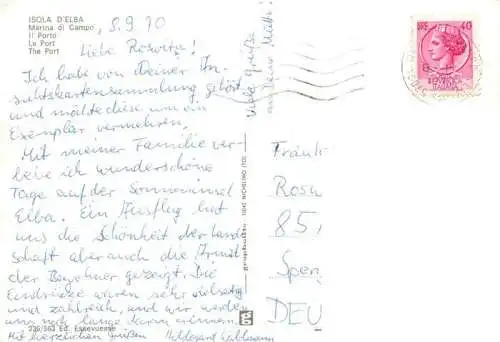 ISOLA D'ELBA
Marina di Campo
Il Porto
Le Port
The Port
5.9.70
Liebe Roswita!
Ich habe von Deiner An-
sichtskartensammlung gehört
und möchte diese um ein
Exemplar vermehren.
Mit meiner Familie ver-
lebe ich wunderschöne
Tage auf der Sonneninsel
Elba. Ein Ausflug hat
uns die Schönheit der Land-
schaft aber auch die Armut
der Bewohner gezeigt. Die
Eindrücke waren sehr vielseitig
und zahlreich, und wir werden
uns noch lange daran erinnern.
Mit herzlichen Grüßen Hildegard
Viele Grüße
an Deine Mutti!
226/563 Ed. Essevuesse
10142 NICHELINO (TO)
40
ITALIANA
Fräule
Rosw
85,
Spen
DEU